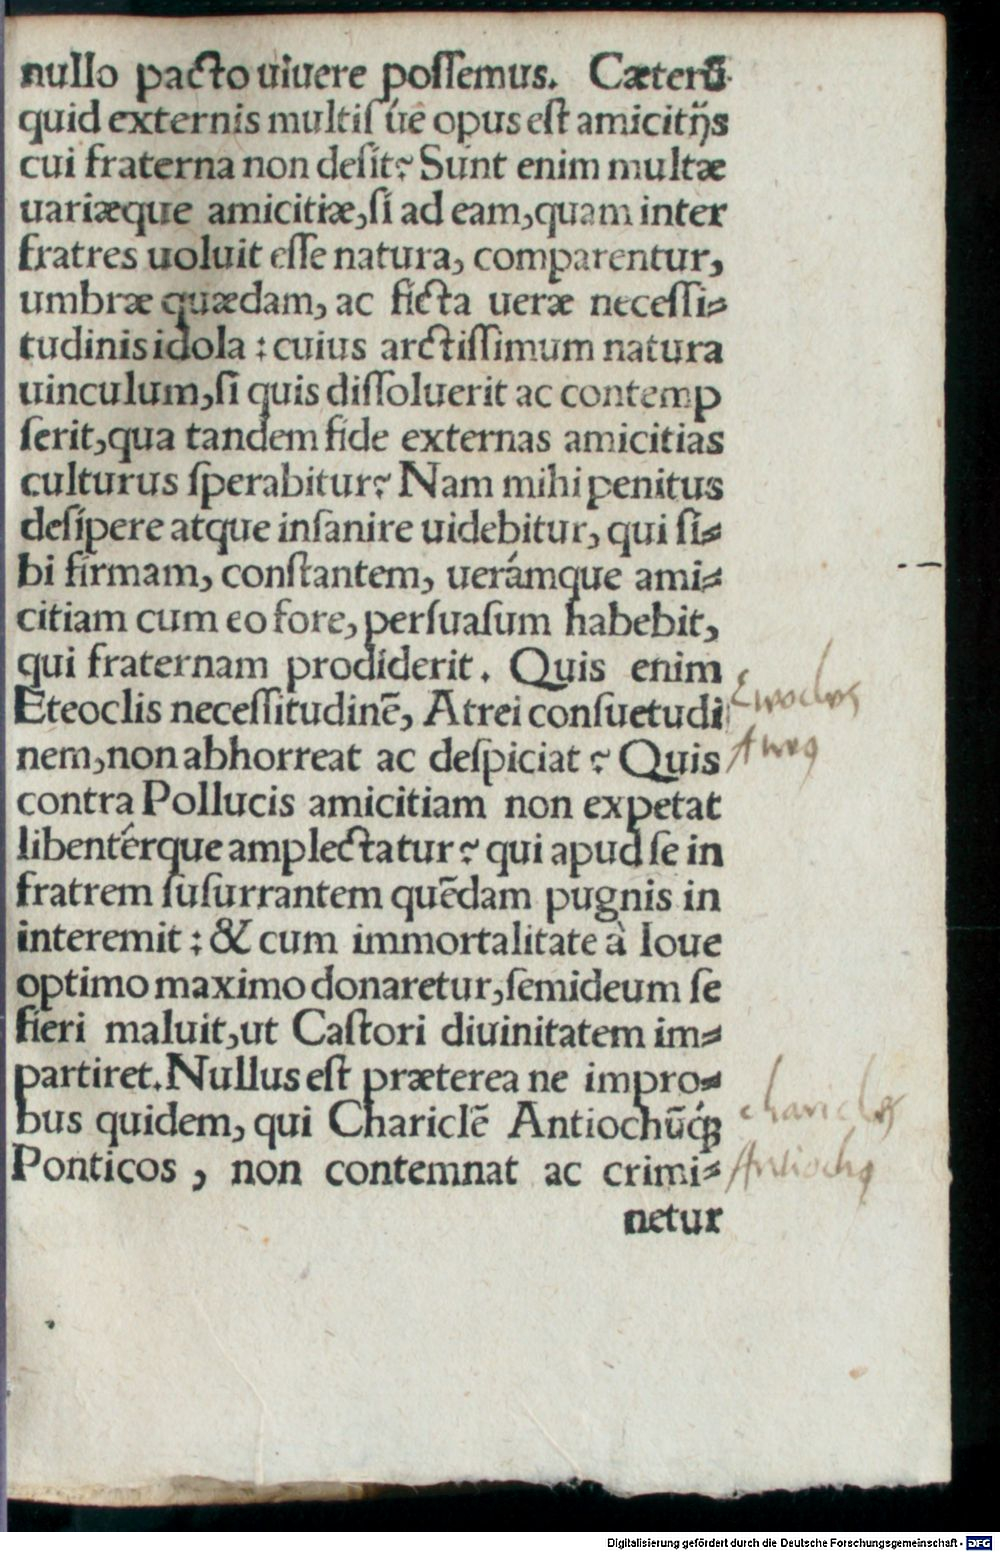 nullo pacto uiuere poſſemus. Cæterũ
quid externis multiſ úe opus eſt amicitijs
cui fraterna non deſit? Sunt enim multæ
uariæque amicitiæ, ſi ad eam, quam inter
fratres uoluit eſſe natura, comparentur,
umbræ quædam, ac ficta ueræ neceſſi-
tudinis idola : cuius arctiſſimum natura
uinculum, ſi quis diſſoluerit ac contemp
ſerit, qua tandem fide externas amicitias
culturus ſperabitur? Nam mihi penitus
deſipere atque inſanire uidebitur, qui ſi-
bi firmam, conſtantem, uerámque ami-
citiam cum eo fore, perſuaſum habebit,
qui fraternam prodiderit. Quis enim
Eteoclis neceſſitudinẽ, Atrei conſuetudi
nem, non abhorreat ac deſpiciat? Quis
contra Pollucis amicitiam non expetat
libentérque amplectatur? qui apud ſe in
fratrem ſuſurrantem quẽdam pugnis in
interemit : & cum immortalitate à Ioue
optimo maximo donaretur, ſemideum ſe
fieri maluit, ut Caſtori diuinitatem im-
partiret. Nullus eſt præterea ne impro-
bus quidem, qui Chariclẽ Antiochũq́ꝫ
Ponticos, non contemnat ac crimi-
netur
charicles
Antiochꝰ
Digitalisierung gefördert durch die Deutsche Forschungsgemeinschaft - DFG